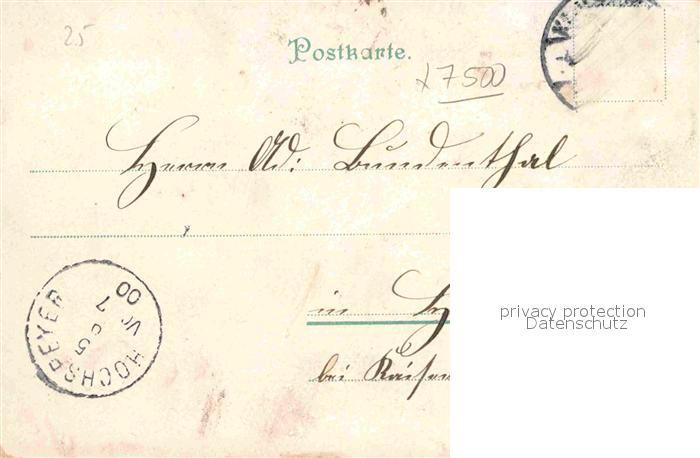 25
Postkarte.
x 7500
Herrn Ad: Bundenthal
in
bei Kaiser
HOCHSPEYER
00
privacy protection
Datenschutz